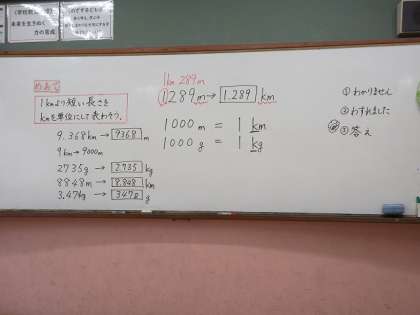 めあて
1kmより短い長さを
kmを単位にして表わそう。
9.368km → 9368 m
9km → 9000m
2735g → 2.735 kg
8848m → 8.848 km
3.47kg → 3470 g
1km 289m
1289m → 1.289 km
1000m = 1 km
1000g = 1 kg
①わかりません
②わすれました
③答え
未来を生きぬく
力の育成